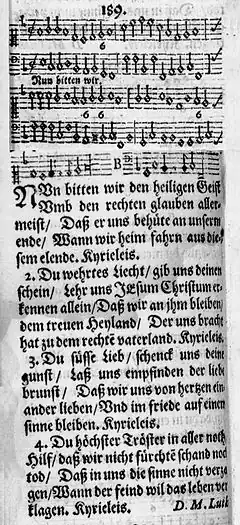 189.
6
Nun bitten wir
6 6
6
B
NVn bitten wir den heiligen Geist
Vmb den rechten glauben aller
meist/ Daß er uns behüte an unserm
ende/ Wann wir heim fahrn aus die
sem elende. Kyrieleis.
2. Du wehrtes Liecht/ gib uns deinen
schein/ Lehr uns JEsum Christum er
kennen allein/ Daß wir an jhm bleiben/
dem treuen Heyland/ Der uns bracht
hat zu dem rechtē vaterland. Kyrieleis.
3. Du süsse Lieb/ schenck uns deine
gunst/ Laß uns empfinden der liebe
brunst/ Daß wir uns von hertzen ein
ander lieben/ Vnd im friede auf einen
sinne bleiben. Kyrieleis.
4. Du höchster Tröster in aller noth
Hilf/ daß wir nicht fürchtē schand noch
tod/ Daß in uns die sinne nicht verza
gen/ Wann der feind wil das leben ver
klagen. Kyrieleis. D. M. Luth